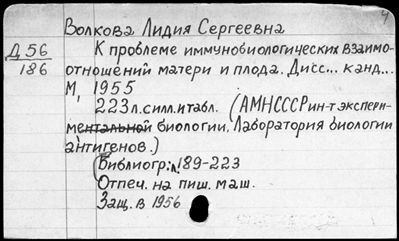 4
Волкова Лидия Сергеевна
Д 56
186
К проблеме иммунобиологических взаимо-
отношений матери и плода. Дисс... канд...
М, 1955
223 л. с илл. и табл. (АМН СССР ин-т экспери-
ментальной биологии. Лаборатория биологии
антигенов.)
(Библиогр.: л. 189-223
Отпеч. на пиш. маш.
Защ. в 1956